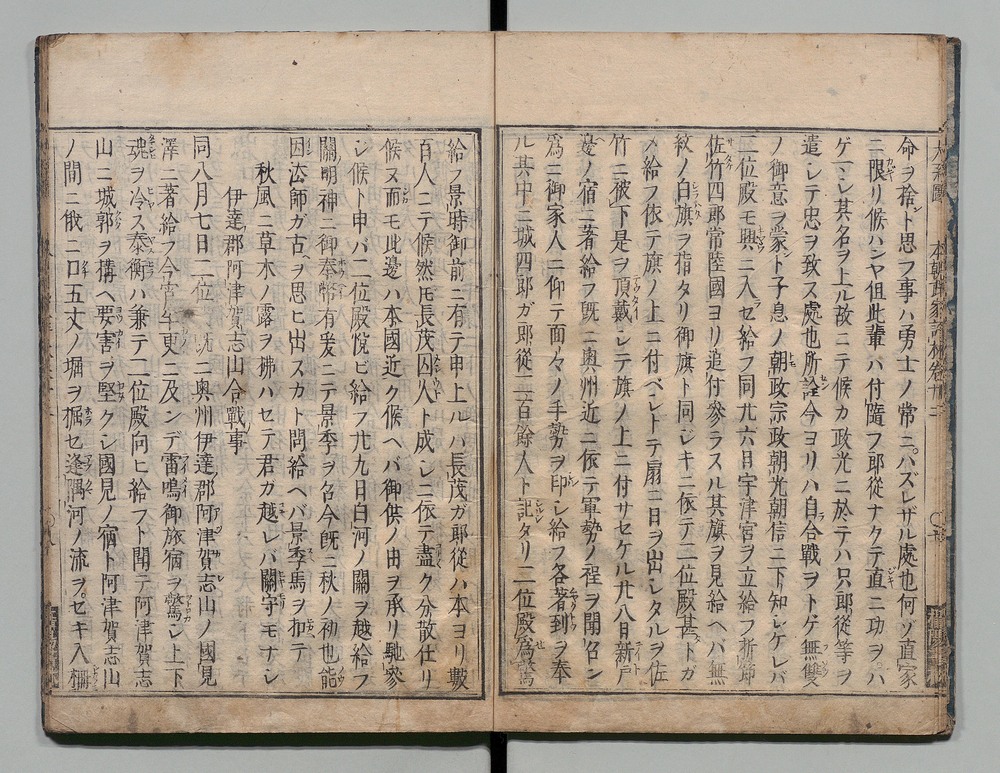 命ヲ捨ント思フ事ハ勇士ノ常ニハズレザル處也何ゾ直家
ニ限リ候ハンヤ但此輩ハ付隨フ郎從ナクテ直ニ功ヲハ
ゲマシ其名ヲ上ル故ニテ候カ政光ニ於テハ只郎從等ヲ
遣シテ忠ヲ致ス處也所詮今ヨリハ自合戰ヲトゲ無雙
ノ御意ヲ蒙ト子息ノ朝政宗政朝光朝信ニ下知シケレバ
二位殿モ興ニ入セ給フ同廿六日宇津宮ヲ立給フ折節
佐竹四郎常陸國ヨリ追付參ラスル其旗ヲ見給ヘバ無
紋ノ白旗ヲ指タリ御旗ト同ジキニ依テ二位殿甚トガ
メ給フ依テ旗ノ上ニ付ベシトテ扇ニ日ヲ出シタルヲ佐
竹ニ彼下是ヲ頂戴シテ旗ノ上ニ付サセケル廿八日新戸
邊ノ宿ニ著給フ既ニ奥州近ニ依テ軍勢ノ程ヲ聞召ン
爲ニ御家人ニ仰テ面々ノ手勢ヲ印シ給フ各著到ヲ奉
ル其中ニ城四郎ガ郎從二百餘人ト記タリ二位殿
給フ景時御前ニ有テ申上ルハ長茂ガ郎從ハ本ヨリ數
百人ニテ候然𪜈長茂囚人ト成シニ依テ盡ク分散仕リ
候ス而モ此邊ハ本國近ク候ヘバ御供ノ由ヲ承リ馳參
シ候ト申バ二位殿悦ビ給フ廿九日白河ノ關ヲ越給フ
關明神ニ御奉幣有爰ニテ景季ヲ召今既ニ秋ノ初也能
因法師ガ古ヲ思ヒ出スカト問給ヘバ景季馬ヲ扣テ
秋風ニ草木ノ露ヲ拂ハセテ君ガ越レバ關守モナシ
伊達郡阿津賀志山合戰事
同八月七日二位殿既ニ奥州伊達郡阿津賀志山ノ國見
澤ニ著給フ今宵半更ニ及ンデ雷鳴御旅宿ヲ驚シ上下
魂ヲ冷ス泰衡ハ兼テ二位殿向ヒ給フト聞テ阿津賀志
山ニ城郭ヲ構ヘ要害ヲ堅クシ國見ノ宿ト阿津賀志山
ノ間ニ俄ニ口五丈ノ堀ヲ掘セ逢隈河ノ流ヲセキ入柵